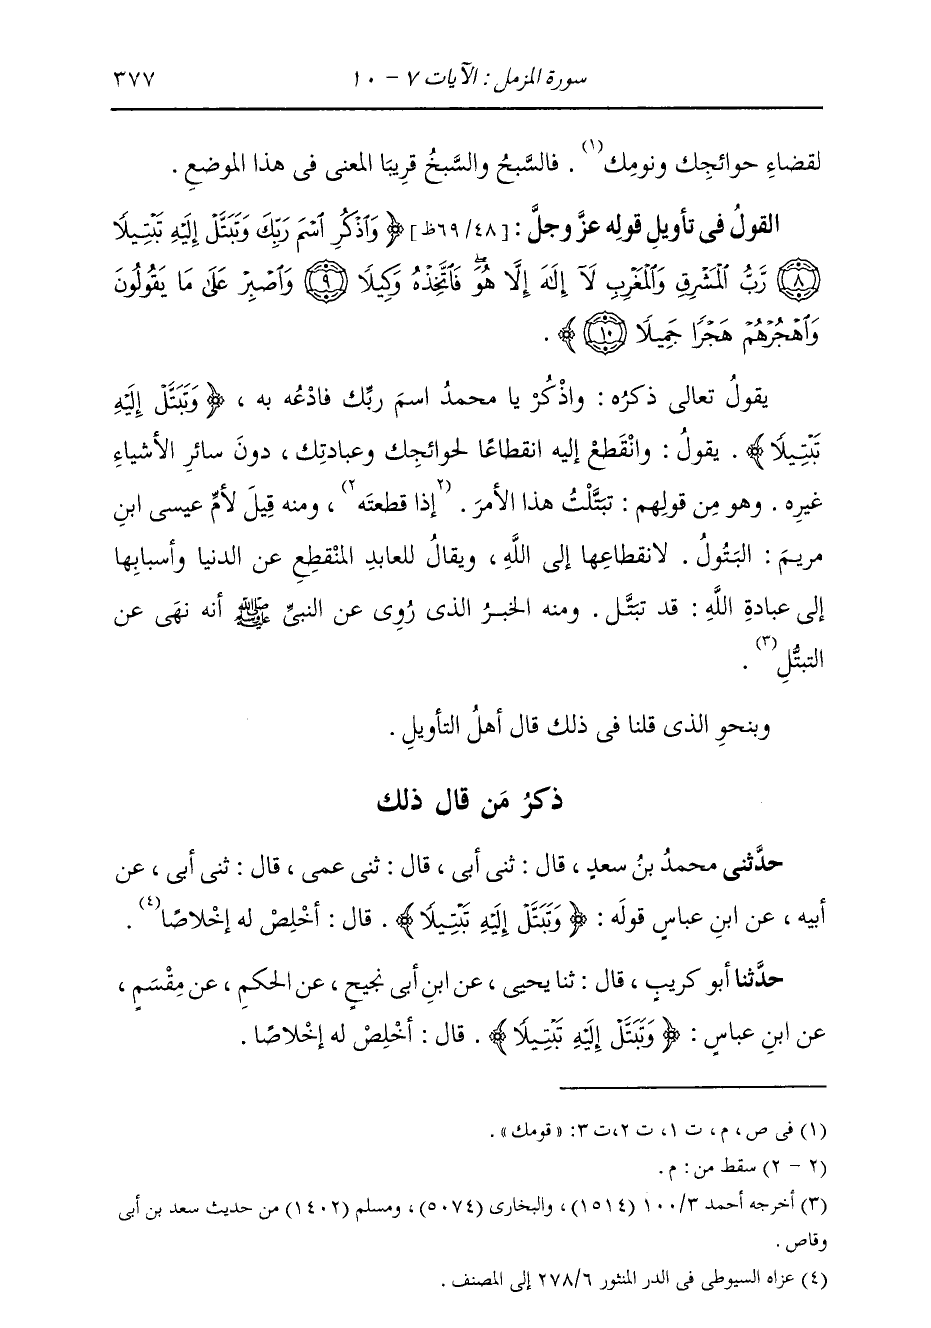 سورة المزمل : الآيات ٧ - ١٠ ٣٧٧
لقضاءِ حوائجِك ونومِك(١) . فالسَّبحُ والسَّبخُ قريبَا المعنى فى هذا الموضعِ .
القولُ فى تأويلِ قوله عزَّ وجلَّ : [٦٩/٤٨ظ] ﴿ وَٱذْكُرِ ٱسْمَ رَبِّكَ وَتَبَتَّلْ إِلَيْهِ تَبْتِيلًا
﴿٨﴾ رَّبُّ ٱلْمَشْرِقِ وَٱلْمَغْرِبِ لَآ إِلَٰهَ إِلَّا هُوَ فَٱتَّخِذْهُ وَكِيلًا ﴿٩﴾ وَٱصْبِرْ عَلَىٰ مَا يَقُولُونَ
وَٱهْجُرْهُمْ هَجْرًا جَمِيلًا ﴿١٠﴾ ﴾ .
يقولُ تعالى ذكرُه : واذْكُرْ يا محمدُ اسمَ ربِّك فادْعُه به ، ﴿ وَتَبَتَّلْ إِلَيْهِ
تَبْتِيلًا ﴾ . يقولُ : وانْقَطعْ إليه انقطاعًا لحوائجِك وعبادتِك ، دونَ سائرِ الأشياءِ
غيرِه . وهو مِن قولِهم : تبتَّلْتُ هذا الأمرَ . (٢إذا قطعتَه٢) ، ومنه قِيلَ لأمِّ عيسى ابنِ
مريمَ : البَتُولُ . لانقطاعِها إلى اللَّهِ ، ويقالُ للعابدِ المنْقطِعِ عن الدنيا وأسبابِها
إلى عبادةِ اللَّهِ : قد تبتَّل . ومنه الخبرُ الذى رُوِى عن النبىِّ ﷺ أنه نهَى عن
التبتُّلِ(٣) .
وبنحوِ الذى قلنا فى ذلك قال أهلُ التأويلِ .
ذكرُ مَن قال ذلك
حدَّثنى محمدُ بنُ سعدٍ ، قال : ثنى أبى ، قال : ثنى عمى ، قال : ثنى أبى ، عن
أبيه ، عن ابنِ عباسٍ قولَه : ﴿ وَتَبَتَّلْ إِلَيْهِ تَبْتِيلًا ﴾ . قال : أخْلِصْ له إخْلاصًا(٤) .
حدَّثنا أبو كريبٍ ، قال : ثنا يحيى ، عن ابنِ أبى نجيحٍ ، عن الحكمِ ، عن مِقْسَمٍ ،
عن ابنِ عباسٍ : ﴿ وَتَبَتَّلْ إِلَيْهِ تَبْتِيلًا ﴾ . قال : أخْلِصْ له إخْلاصًا .
(١) فى ص ، م ، ت ١، ت ٢،ت ٣: «قومك» .
(٢ - ٢) سقط من : م .
(٣) أخرجه أحمد ١٠٠/٣ (١٥١٤) ، والبخارى (٥٠٧٤) ، ومسلم (١٤٠٢) من حديث سعد بن أبى
وقاص .
(٤) عزاه السيوطى فى الدر المنثور ٢٧٨/٦ إلى المصنف .